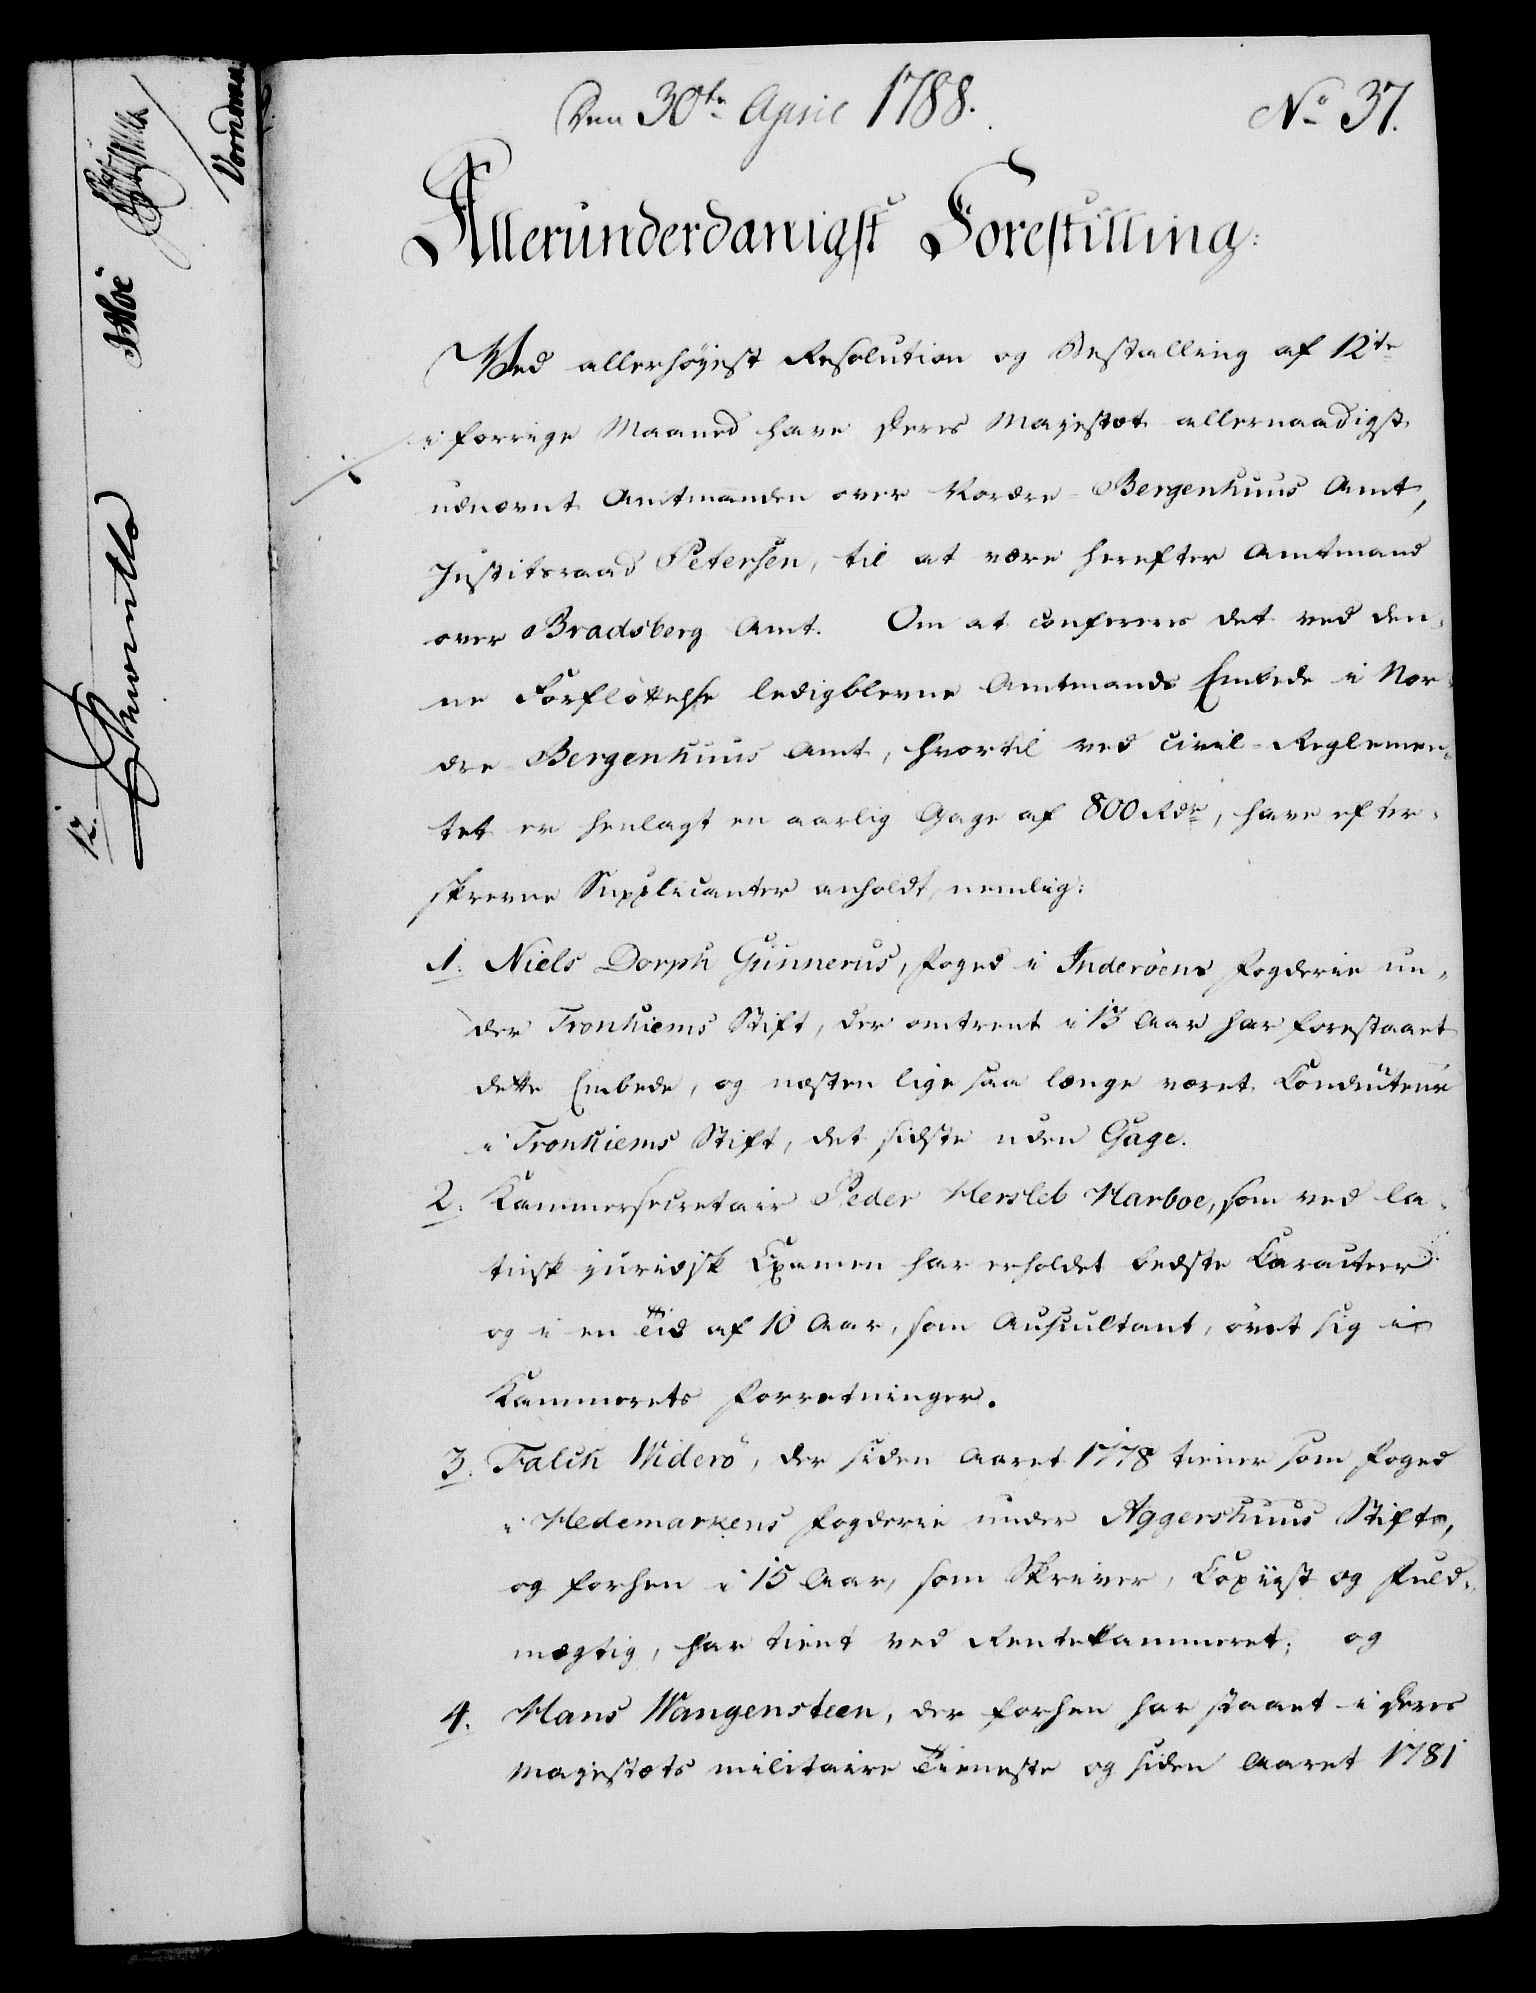 Den 30te April 1788.
No 37.
Allerunderdanigst Forestilling:
Ved allerhøyest Resolution og Bestalling af 12te
i forrige Maaned have Deres Majestæt allernaadigst
udnævnt Amtmanden over Nordre-Bergenhuus Amt,
Justitsraad Petersen, til at være herefter Amtmand
over Bradsberg Amt. Om at conferres det ved den-
ne Forflöttelse ledigblevne Amtmands Embede i Nor-
dre-Bergenhuus Amt, hvortil ved Civil-Reglemen-
tet er henlagt en aarlig Gage af 800 Rdr, have efter-
skrevne Supplicanter anholdt, nemlig:
1. Niels Dorph Gunnerus, Foged i Inderöens Fogderie un-
der Tronhiems Stift, der omtrent i 13 Aar har forestaaet
dette Embede, og næsten lige saa længe været Conducteur
i Tronhiems Stift, det sidste uden Gage.
2. Kammersecretair Peder Hersleb Harboe, som ved la-
tinsk juridisk Examen har erholdet bedste Caracteer
og i en Tid af 10 Aar, som Auscultant, övet sig i
Kammerets Forretninger.
3. Falch Widerö, der siden Aaret 1778 tiener som Foged
i Hedemarkens Fogderie under Aggershuus Stift,
og forhen i 15 Aar, som Skriver, Copiist og Fuld-
mægtig, har tient ved Rentekammeret; og
4. Hans Wangensteen, der forhen har staaet i Deres
Majestæts militaire Tieneste og siden Aaret 1781
12.